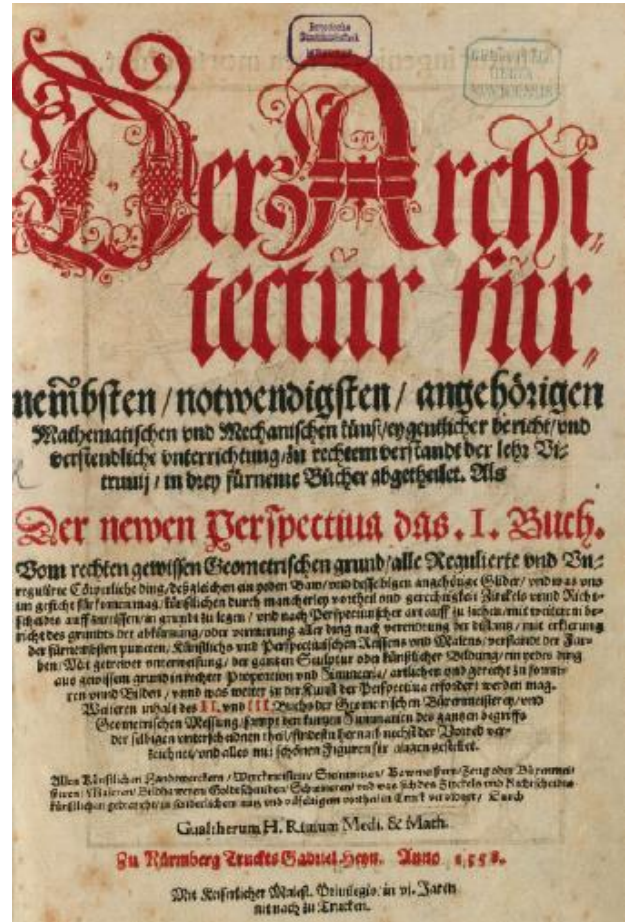 Der Archi⸗
tectur für⸗
nem̃bsten / notwendigsten / angehörigen
Mathematischen vnd Mechanischen künst / eygentlicher bericht / vnd
verstendliche vnterrichtung / zu rechtem verstandt der lehr Vi⸗
truuij / in drey fürneme Bücher abgetheilet. Als
Der newen Perspectiua das. I. Buch.
Vom rechten gewissen Geometrischen grund / alle Regulierte vnd Vn⸗
regulirte Cörperliche ding / deßgleichen ein yeden Baw / vnd desselbigen angehörige Glider / vnd was vns
im gesicht fürkommen mag / künstlichen durch mancherley vortheil vnd gerechtigkeit Zirckels vnnd Richt⸗
scheides auff zureissen / in grundt zu legen / vnd nach Perspectiuischer art auff zu ziehen / mit weiterem be⸗
richt des grundes der abkürtzung / oder vermerung aller ding nach verendrung der distantz / mit erklerung
der fürnembsten puncten, Künstlichs vnd Perspectiuischen Reissens vnd Malens / verstandt der Far⸗
ben / Mit getrewer vnterweisung / der gantzen Sculptur oder künstlicher Bildung / ein yedes ding
aus gewissem grund in rechter Proportion vnd Simmetria / artlichen vnd gerecht zu formi⸗
ren vnnd Bilden / vnnd was weiter zu der Kunst der Perspectiua erfordert werden mag.
Weiteren inhalt des II. vnd III. Buchs der Geometrischen Büxenmeisterey / vnd
Geometrischen Messung / sampt den kurtzen Summarien des gantzen begriffs
der selbigen vnterscheidnen theil / findestu hernach nechst der Vorred ver⸗
zeichnet / vnd alles mit schönen Figuren für augen gestellet.
Allen Künstlichen Handtwerckern / Werckmeistern / Steinmetzen / Bawmeistern / Zeug oder Büxenmei⸗
stern / Malern / Bildhawern Goldschmiden / Schreinern / vnd was sich des Zirckels vnd Richtscheides
künstlichen gebraucht / zu sonderlichem nutz vnd vilfaltigem vortheil in Truck verordnet / Durch
Gualtherum H. Riuium Medi. & Math.
Zu Nürmberg Truckts Gabriel Heyn. Anno 1558.
Mit Keiserlicher Maiest. Priuilegio / in vj. Jaren
nit nach zu Trucken.